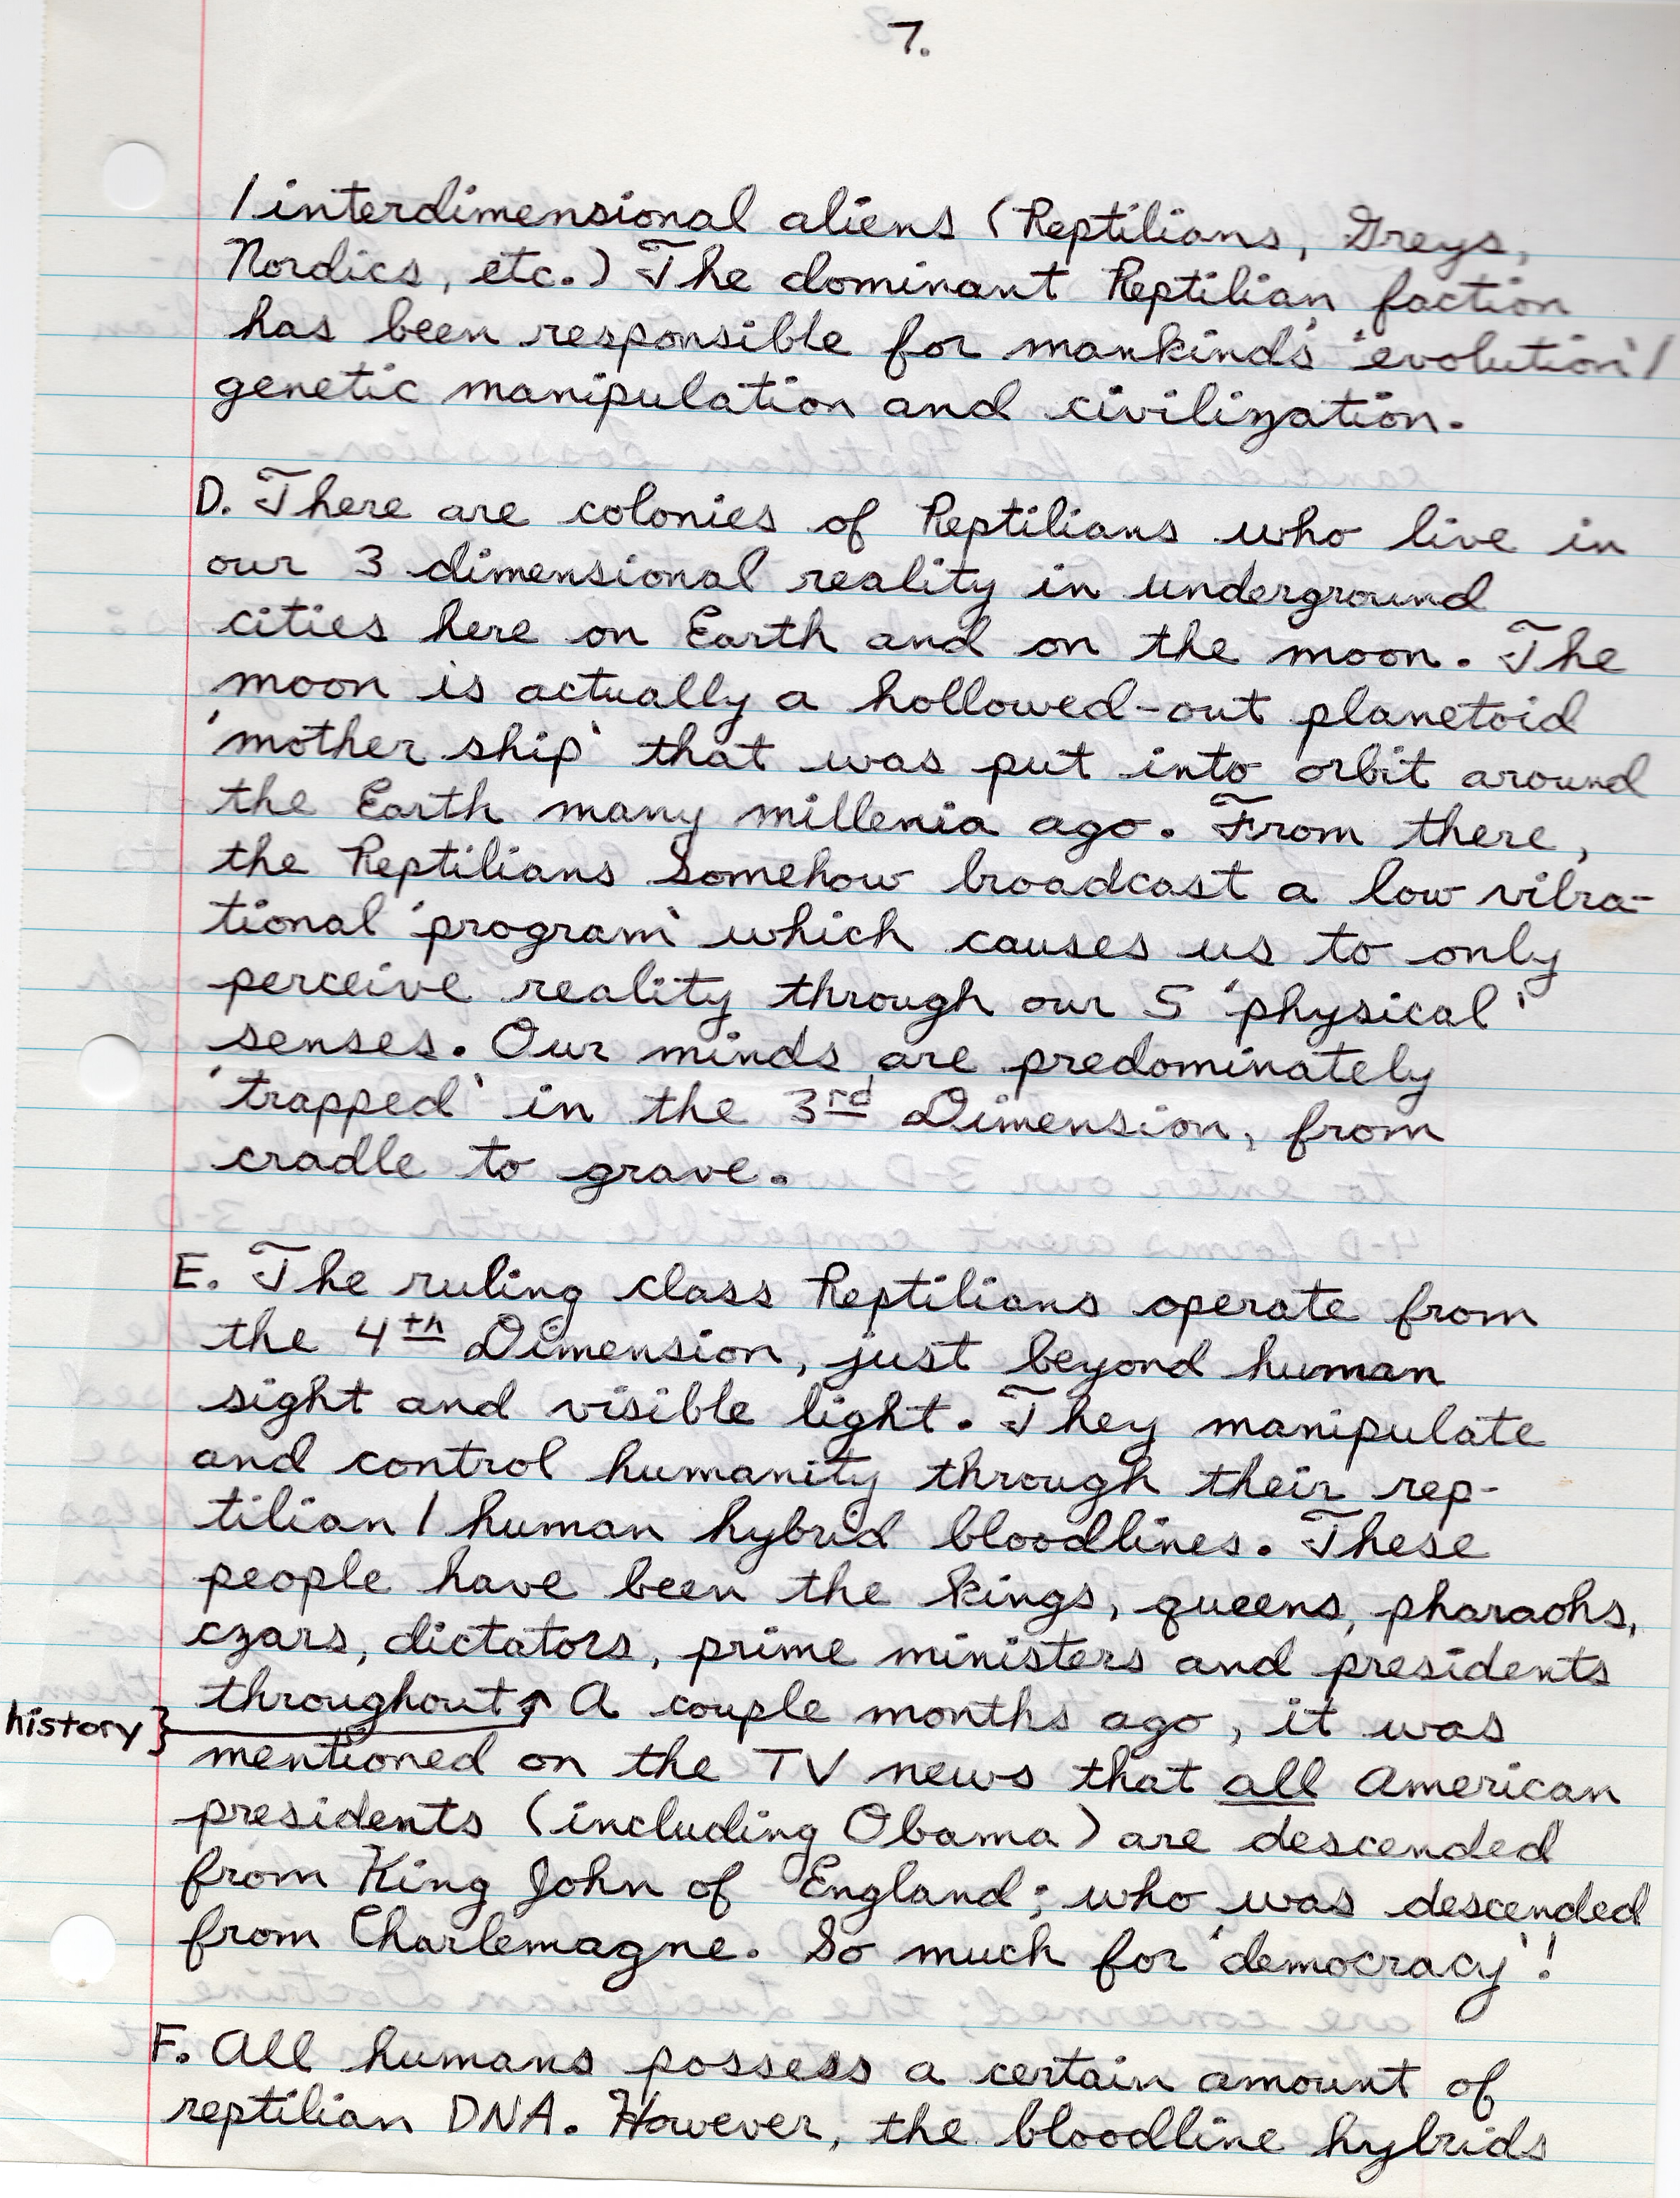 7.
/interdimensional aliens (Reptilians, Greys,
Nordics, etc.) The dominant Reptilian faction
has been responsible for mankind's 'evolution'/
genetic manipulation and civilization.
D. There are colonies of Reptilians who live in
our 3 dimensional reality in underground
cities here on Earth and on the moon. The
moon is actually a hollowed-out planetoid
'mother ship' that was put into orbit around
the Earth many millenia ago. From there,
the Reptilians somehow broadcast a low vibra-
tional 'program' which causes us to only
perceive reality through our 5 'physical'
senses. Our minds are predominately
'trapped' in the 3rd Dimension, from
cradle to grave.
E. The ruling class Reptilians operate from
the 4th Dimension, just beyond human
sight and visible light. They manipulate
and control humanity through their rep-
tilian/human hybrid bloodlines. These
people have been the kings, queens, pharaohs,
czars, dictators, prime ministers and presidents
throughout↑ A couple months ago, it was
history}
mentioned on the TV news that all American
presidents (including Obama) are descended
from King John of England; who was descended
from Charlemagne. So much for 'democracy'!
F. All humans possess a certain amount of
reptilian DNA. However, the bloodline hybrids